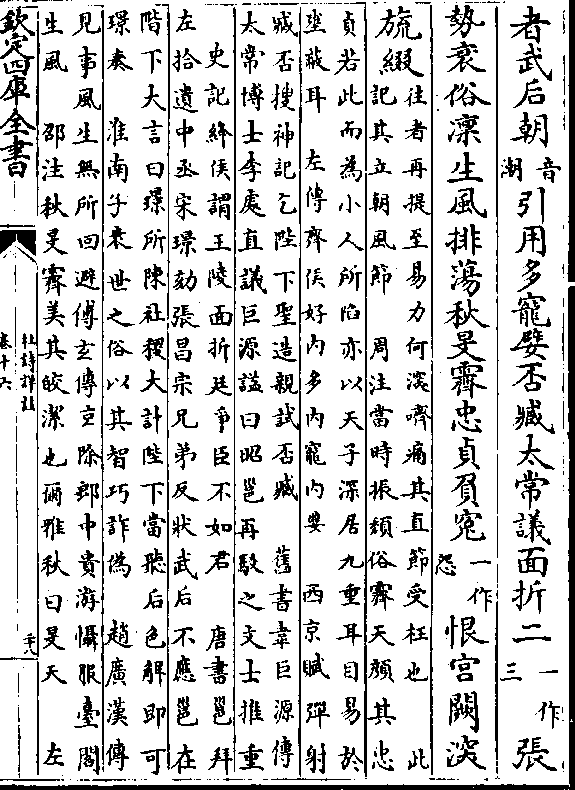 者武后朝音潮引用多寵嬖否臧太常議面折二一作三張
勢衰俗凜生風排蕩秋旻霽忠貞負冤一作怨恨宮闕深
旒綴往者再提至易力何深嚌痛其直節受枉也 此
記其立朝風節 周注當時振頹俗霽天顏其忠
貞若此而為小人所陷亦以天子深居九重耳目易於
坐蔽耳 左傳齊侯好內多內寵內嬖 西京賦彈射
臧否搜神記乞陛下聖造親試否臧 舊書韋巨源傳
太常博士李處直議巨源諡曰昭邕再駁之文士推重
史記絳侯謂王陵面折廷爭臣不如君 唐書邕拜
左拾遺中丞宋璟劾張昌宗兄弟反狀武后不應邕在
階下大言曰璟所陳社稷大計陛下當聽后色解即可
璟奏 淮南子衰世之俗以其智巧詐偽 趙廣漢傳
見事風生無所回避傅玄傳玄除郎中貴游懾服臺閣
生風 邵注秋旻霽美其皎潔也爾雅秋曰旻天 左
欽定四庫全書
杜詩詳註
卷十六